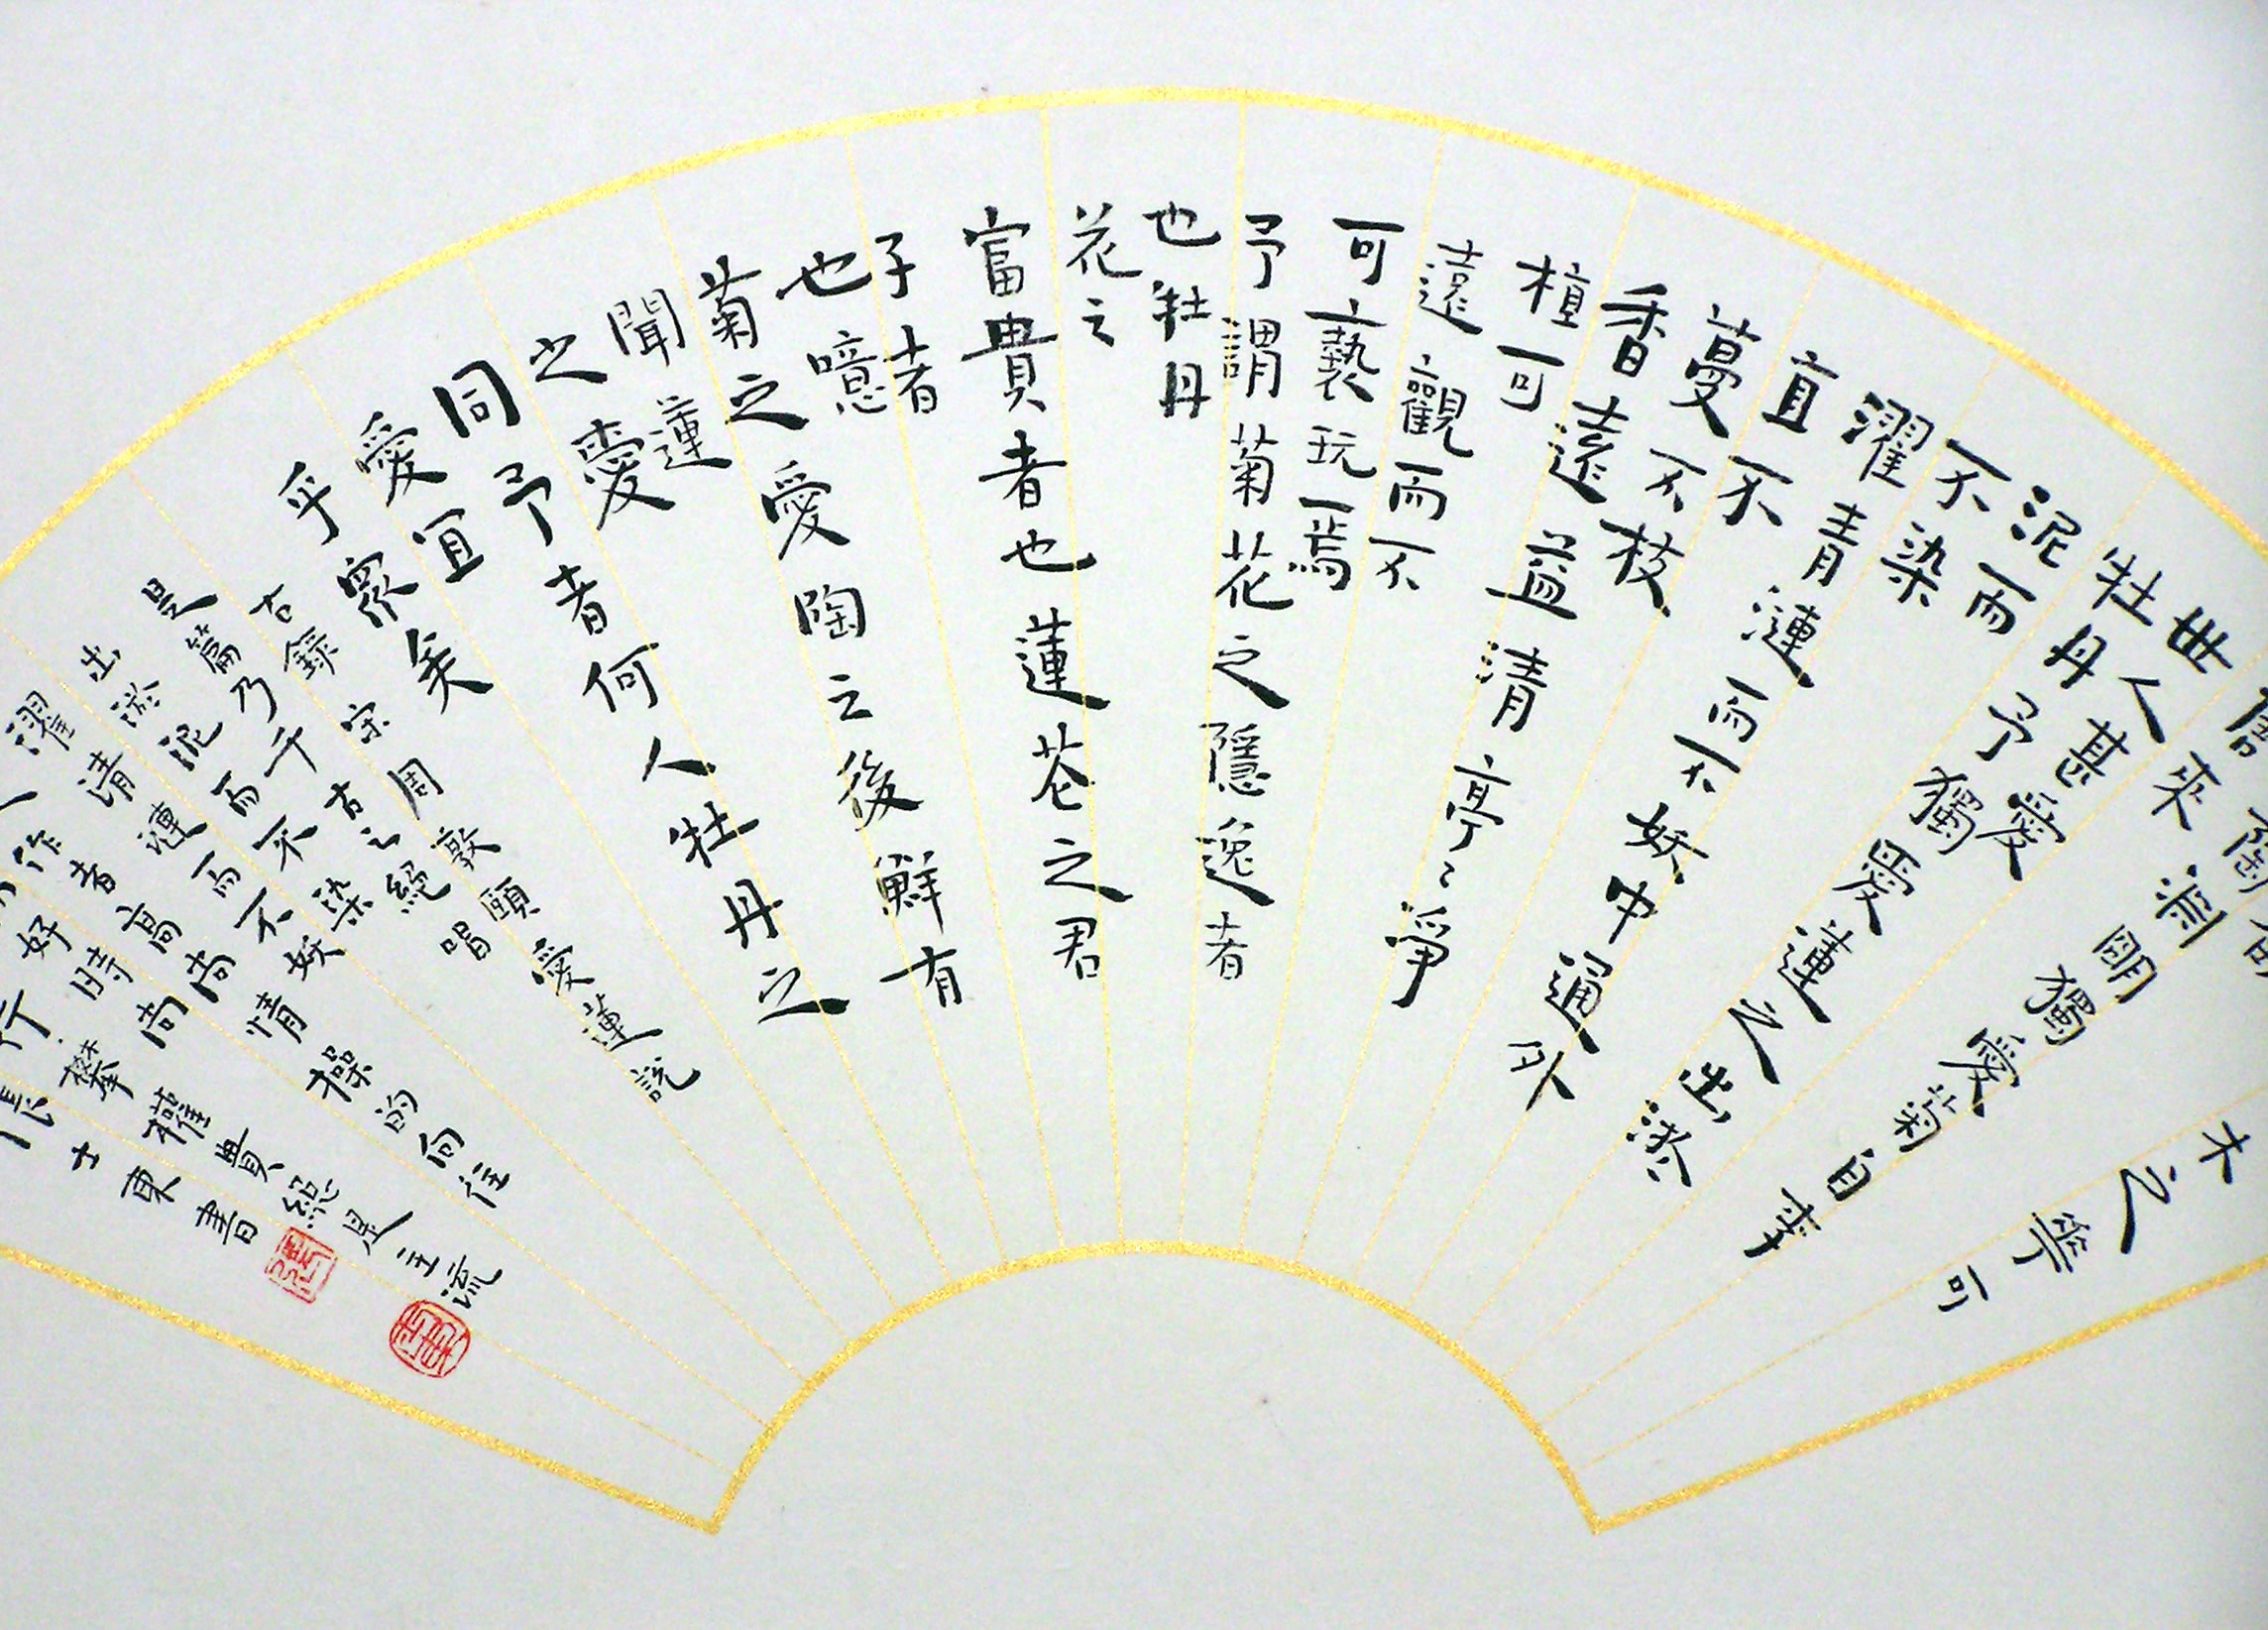 木之華可
陶淵明獨愛菊自李
來
世人甚愛
牡丹予獨愛蓮之出淤
泥而
不染
濯青漣而不妖中通外
直不
蔓不枝
香遠益清亭〻淨
植可
遠觀而不
可褻玩焉
予謂菊花之隱逸者
也牡丹
花之
富貴者也蓮花之君
子者
也噫
菊之愛陶之後鮮有
聞蓮
之愛
同予者何人牡丹之
愛宜
乎眾矣
古錄宋周敦頤愛蓮說
是篇乃千古之絕唱
出淤泥而不染
濯清漣而不妖
作者高尚情操的向往
好時尚
行攀權貴總是主流
士東書